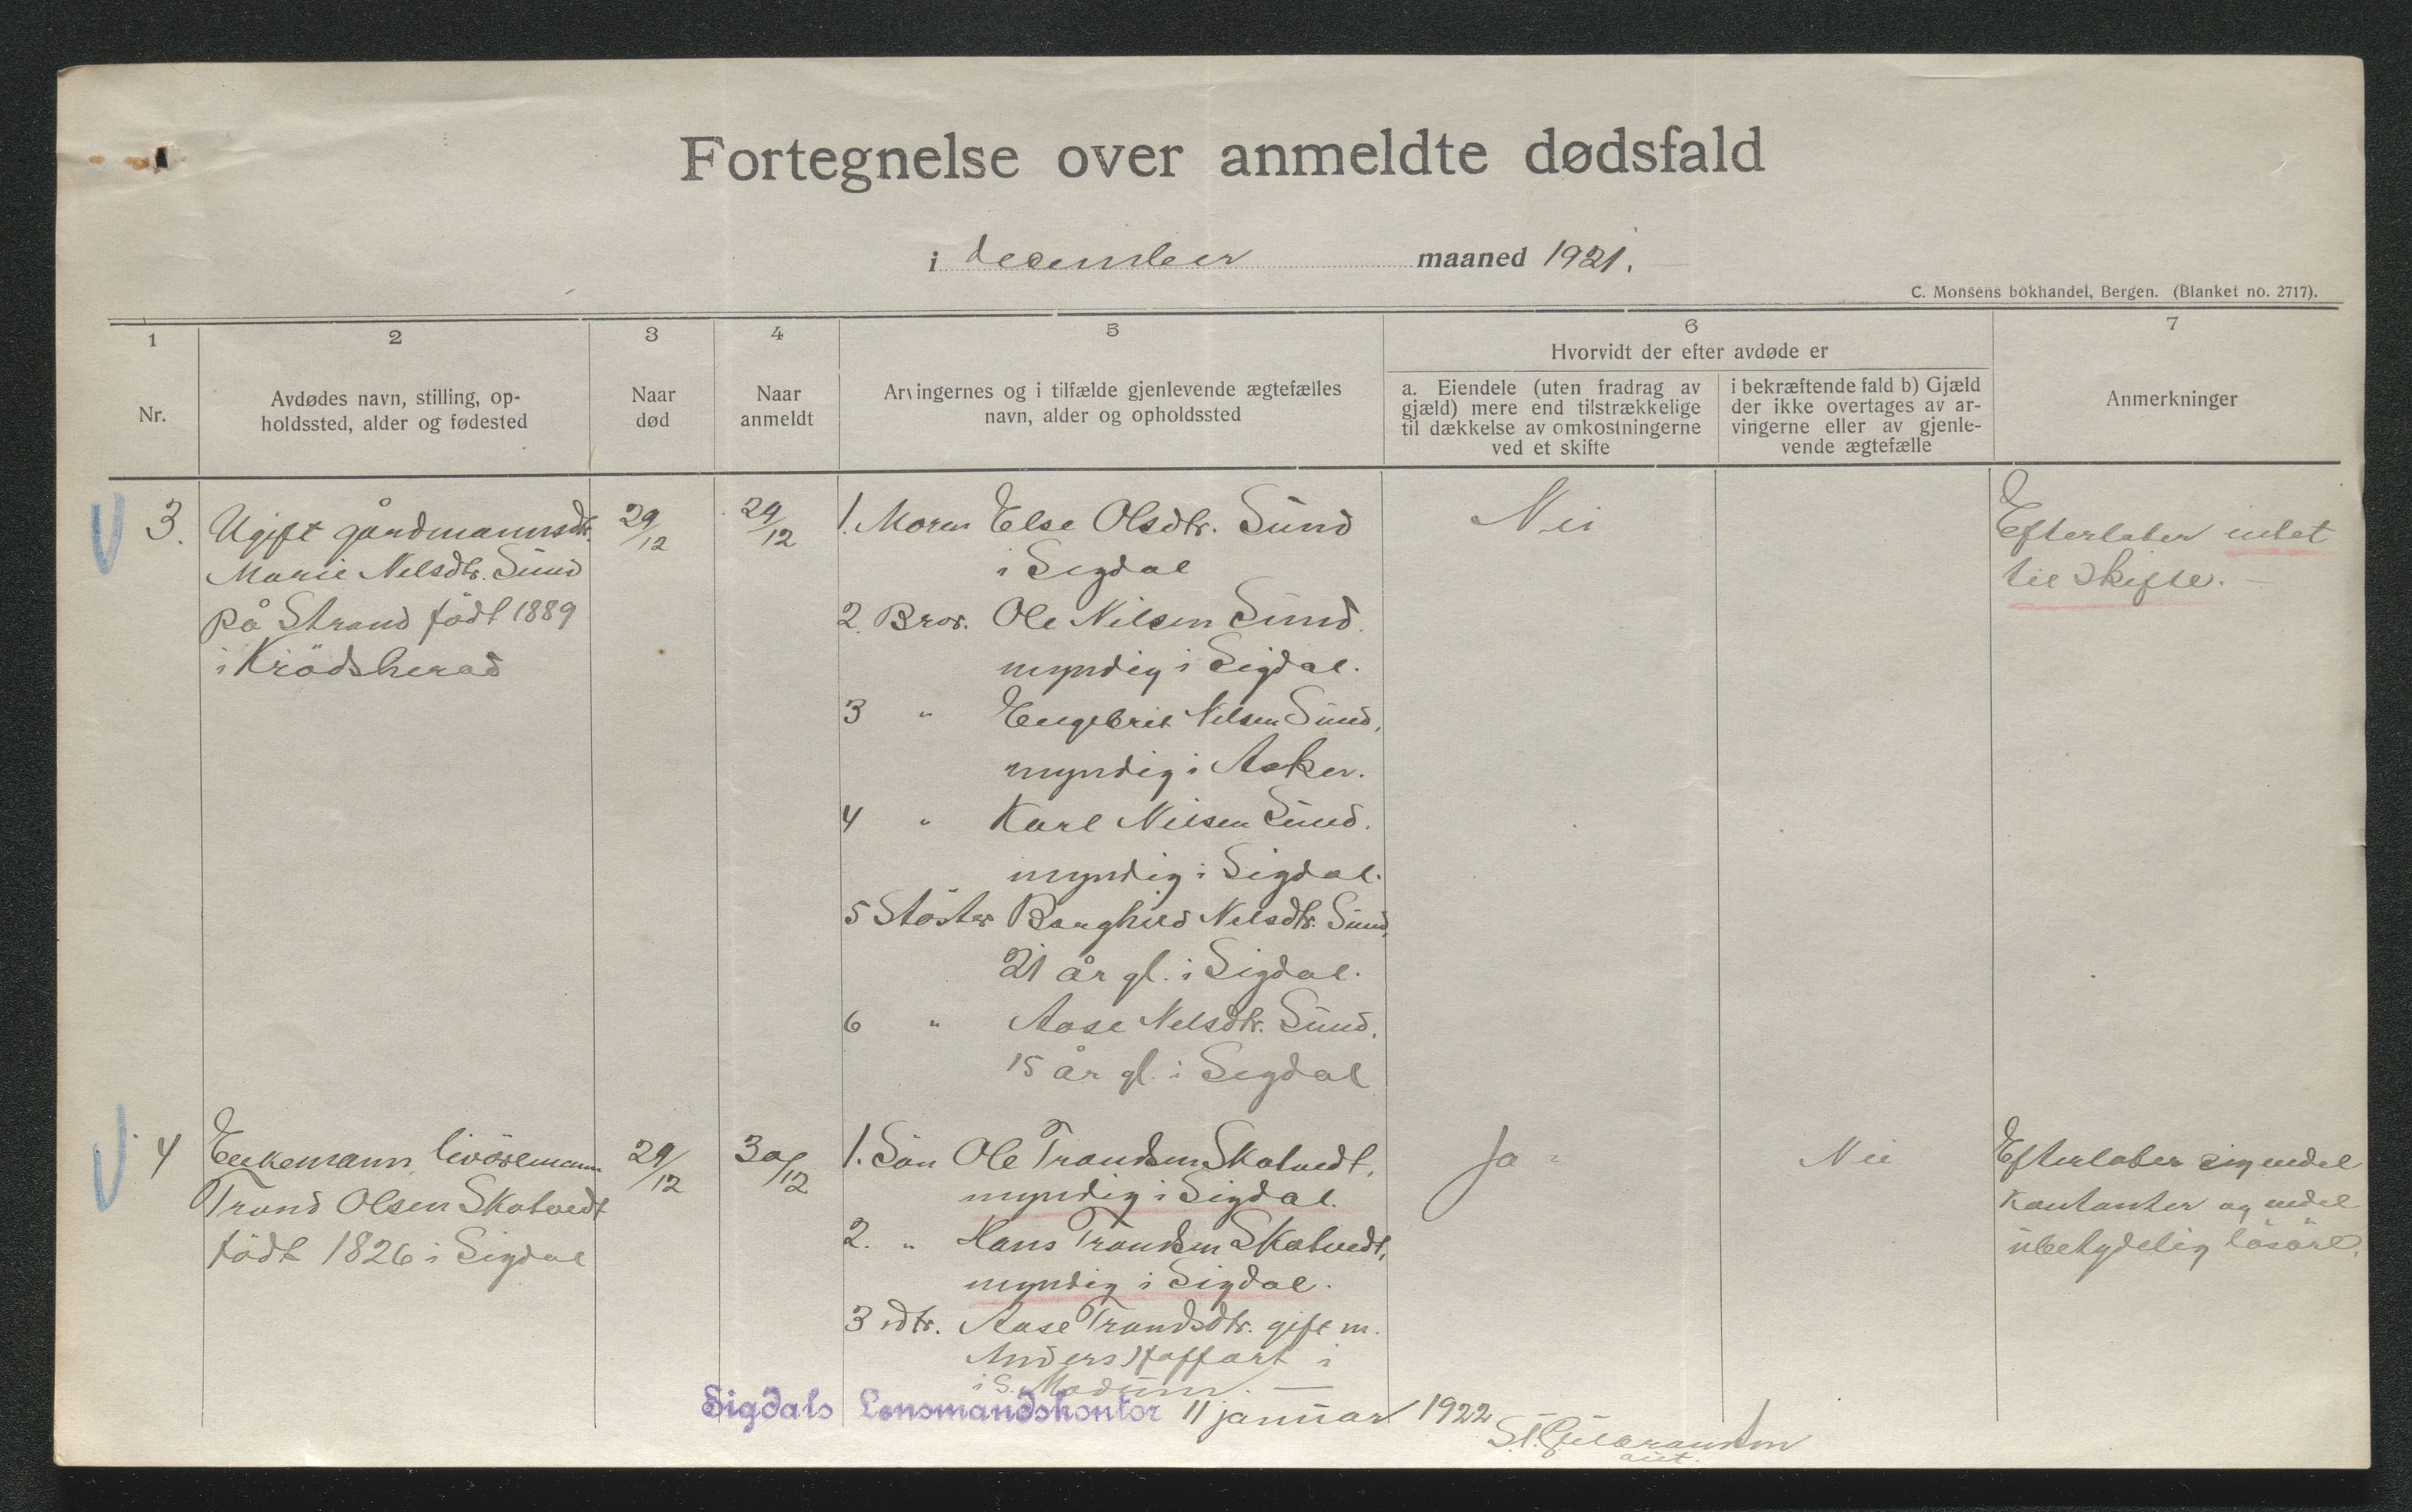 Fortegnelse over anmeldte dødsfald
i december maaned 1921.
C. Monsens bokhandel, Bergen. (Blanket no. 2717).
1
Nr.
2
Avdødes navn, stilling, op-
holdssted, alder og fødested
3
Naar
død
4
Naar
anmeldt
5
Arvingernes og i tilfælde gjenlevende ægtefælles
navn, alder og opholdssted
6
Hvorvidt der efter avdøde er
a. Eiendele (uten fradrag av
gjæld) mere end tilstrækkelige
til dækkelse av omkostningerne
ved et skifte
i bekræftende fald b) Gjæld
der ikke overtages av ar-
vingerne eller av gjenle-
vende ægtefælle
7
Anmerkninger
3.
Ugift gårdmannsdtr.
Marie Nelsdtr. Sund
på Strand född 1889
i Krödsherad
29/12
29/12
1. Moren Else Olsdtr. Sund
i Sigdal
2. Bror. Ole Nilsen Sund.
myndig i Sigdal.
3 " Engebret Nilsen Sund,
myndig i Asker.
4 " Karl Nilsen Sund.
myndig i Sigdal.
5 Söster Borghild Nelsdtr. Sund,
21 år gl. i Sigdal.
6 " Aase Nelsdtr. Sund.
15 år gl. i Sigdal
Nei
Efterlater intet
til skifte. —
4
Enkemann, livöremann
Trond Olsen Skatvedt
född 1826 i Sigdal
29/12
30/12
1. Sön Ole Trondsen Skatvedt,
myndig i Sigdal.
2. " Hans Trondsen Skatvedt,
myndig i Sigdal.
3 dtr. Aase Trondsdtr. gift m.
Anders Hoffart i
i S. Modum. —
Ja
Nei
Efterlater sig endel
kontanter og endel
ubetydelig lösöre.
Sigdals Lensmandskontor 11 januar 1922
St. Gulbrandsen